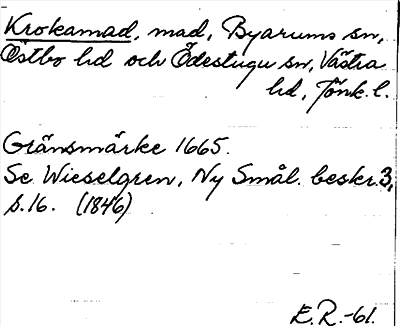 Krokamad, mad, Byarums sn,
Östbo hd och Ödestugu sn, Västra
hd, Jönk. l.
Gränsmärke 1665.
Se Wieselgren, Ny Smål. beskr. 3,
s. 16. (1846)
E.R.-61.